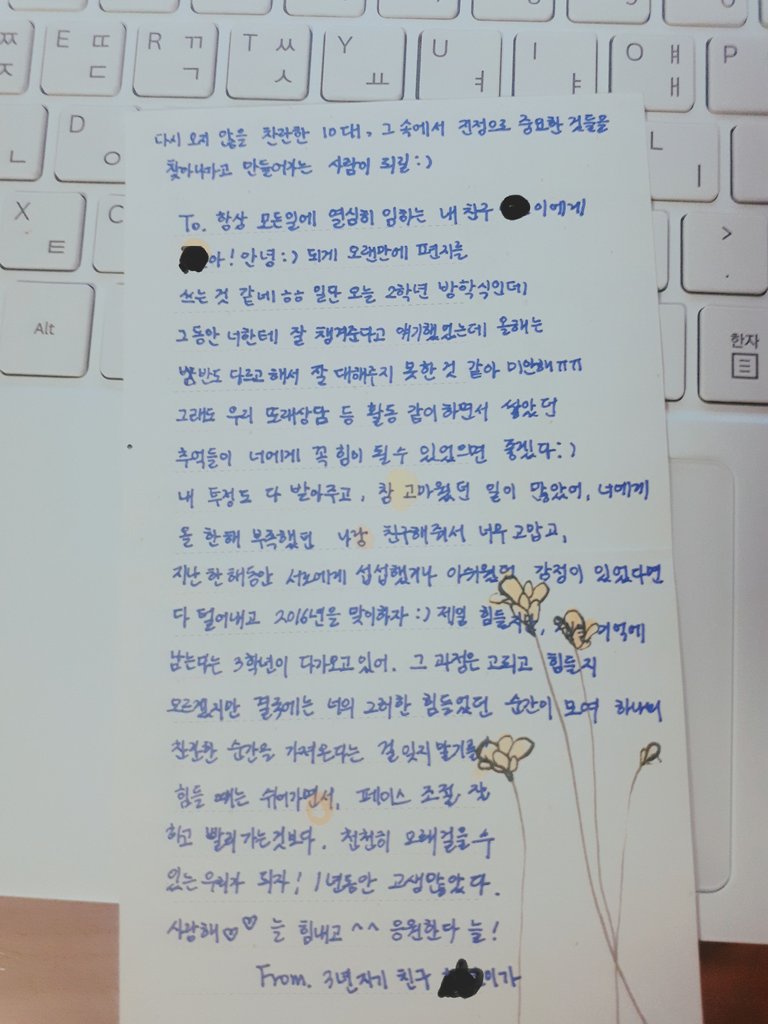 ㅉ ㅈ E ㄸ ㄷ R ㄲ ㄱ T ㅆ ㅅ Y ㅛ U ㅕ I ㅑ O ㅒ ㅐ P
ㄴ D ㅇ L ㅣ
X ㅌ C > .
Alt 한자
다시 오지 않을 찬란한 10대, 그 속에서 진정으로 중요한 것들을
찾아나가고 만들어가는 사람이 되길 :)
To. 항상 모든일에 열심히 임하는 내 친구 이에게
아! 안녕 :) 되게 오랜만에 편지를
쓰는 것 같네 ㅎㅎ 일단 오늘 2학년 방학식인데
그동안 너한테 잘 챙겨준다고 얘기했었는데 올해는
반도 다르고 해서 잘 대해주지 못한 것 같아 미안해 ㅠㅠ
그래도 우리 또래상담 등 활동 같이 하면서 쌓았던
추억들이 너에게 꼭 힘이 될 수 있었으면 좋겠다 :)
내 투정도 다 받아주고, 참 고마웠던 일이 많았어, 너에게
올 한해 부족했던 나랑 친구해줘서 너무 고맙고,
지난 한 해동안 서로에게 섭섭했거나 아쉬웠던 감정이 있었다면
다 털어내고 2016년을 맞이하자 :) 제일 힘들지만, 기억에
남는다는 3학년이 다가오고 있어. 그 과정은 고되고 힘들지
모르겠지만 결국에는 너의 그러한 힘들었던 순간이 모여 하나의
찬란한 순간을 가져온다는 걸 잊지 말기를
힘들 때는 쉬어가면서, 페이스 조절 잘
하고 빨리 가는것보다, 천천히 오래 걸을 수
있는 우리가 되자! 1년동안 고생많았다.
사랑해♡♡ 늘 힘내고 ^^ 응원한다 늘!
From. 3년지기 친구 이가